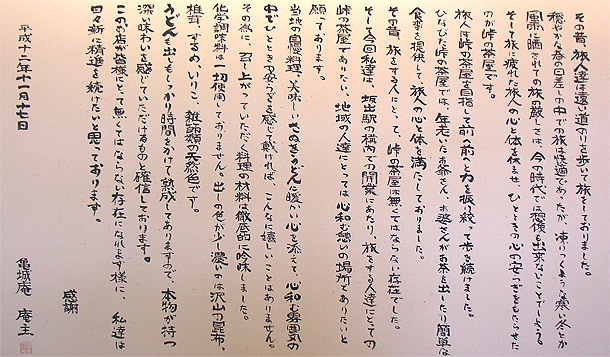 その昔、旅人達は遠い道のりを歩いて旅をしておりました。
穏やかな春の日差しの中での旅は快適であったが、凍りつくような寒い冬とか
風雨に晒されての旅の厳しさは、今の時代では想像出来ないことでしょう。
そして旅に疲れた旅人の心と体を休ませ、ひとときの心の安らぎをもたらせた
のが峠の茶屋です。
旅人は峠の茶屋を目指して前へ前へと力を振り絞って歩を続けました。
ひなびた峠の茶屋では、年老いたお爺さん、お婆さんがお茶を出したり簡単な
食事を提供して、旅人の心と体を満たしておりました。
その昔、旅をする人にとって、峠の茶屋は無くてはならない存在でした。
そして今回私達は、坂出駅の構内での開業にあたり、旅をする人達にとっての
峠の茶屋でありたい、地域の人達にとっては心和む憩いの場所でありたいと
願っております。
当地の自慢料理、美味しいさぬきうどんに暖かい心を添えて、心和む雰囲気の
中でひとときの安らぎを感じて戴ければ、こんなに嬉しいことはありません。
その為に、召し上がっていただく料理の材料は徹底的に吟味しました。
化学調味料は一切使用しておりません。出しの色が少し濃いのは沢山の昆布、
椎茸、するめ、いりこ、雑節類の天然色です。
うどんも出しもしっかり時間をかけて熟成してありますので、本物が持つ
深い味わいを感じていただけるものと確信しております。
このお店が皆様にとって無くてはならない存在になれます様に、私達は
日々新に精進を続けたいと思っております。
感謝
平成十二年十一月十七日
亀城庵 庵主